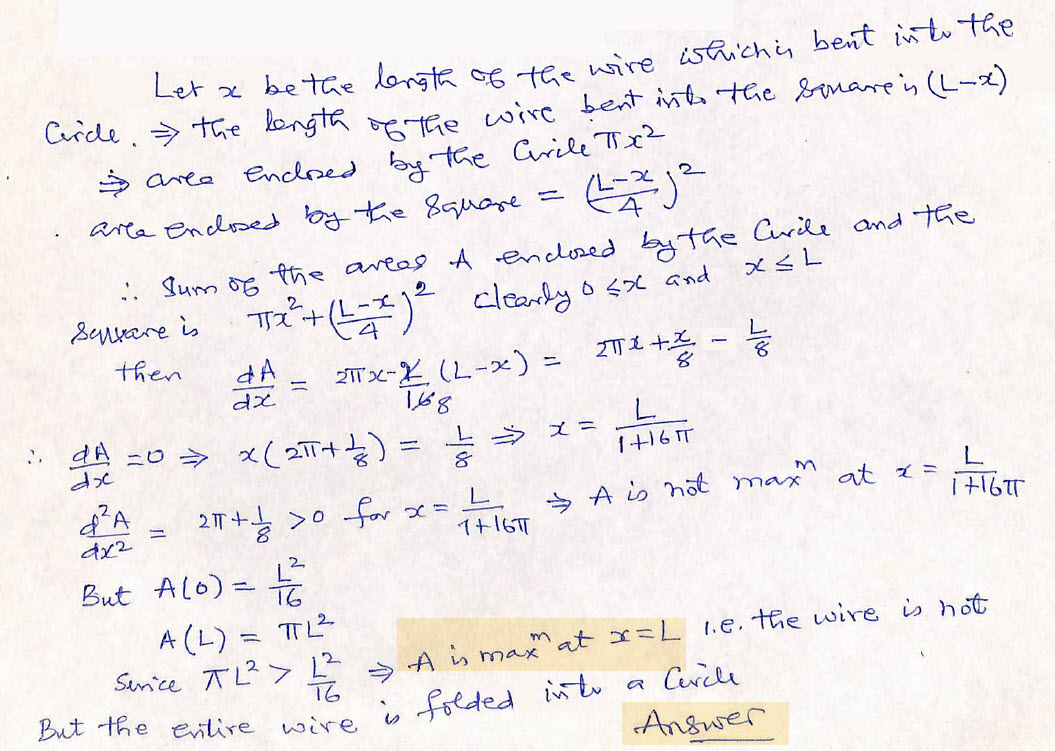 Let x be the length of the wire which is bent into the
Circle. ⇒ the length of the wire bent into the Square is (L-x)
⇒ area enclosed by the Circle πx²
area enclosed by the Square = ((L-x)/4)²
∴ Sum of the areas A enclosed by the Circle and the
Square is πx² + ((L-x)/4)² clearly 0 ≤ x and x ≤ L
then dA/dx = 2πx - 2/16 8 (L-x) = 2πx + x/8 - L/8
∴ dA/dx = 0 ⇒ x(2π + 1/8) = L/8 ⇒ x = L/(1+16π)
d²A/dx² = 2π + 1/8 > 0 for x = L/(1+16π) ⇒ A is not maxᵐ at x = L/(1+16π)
But A(0) = L²/16
A(L) = πL²
Since πL² > L²/16 ⇒ A is maxᵐ at x = L i.e. the wire is not
But the entire wire is folded into a Circle
Answer